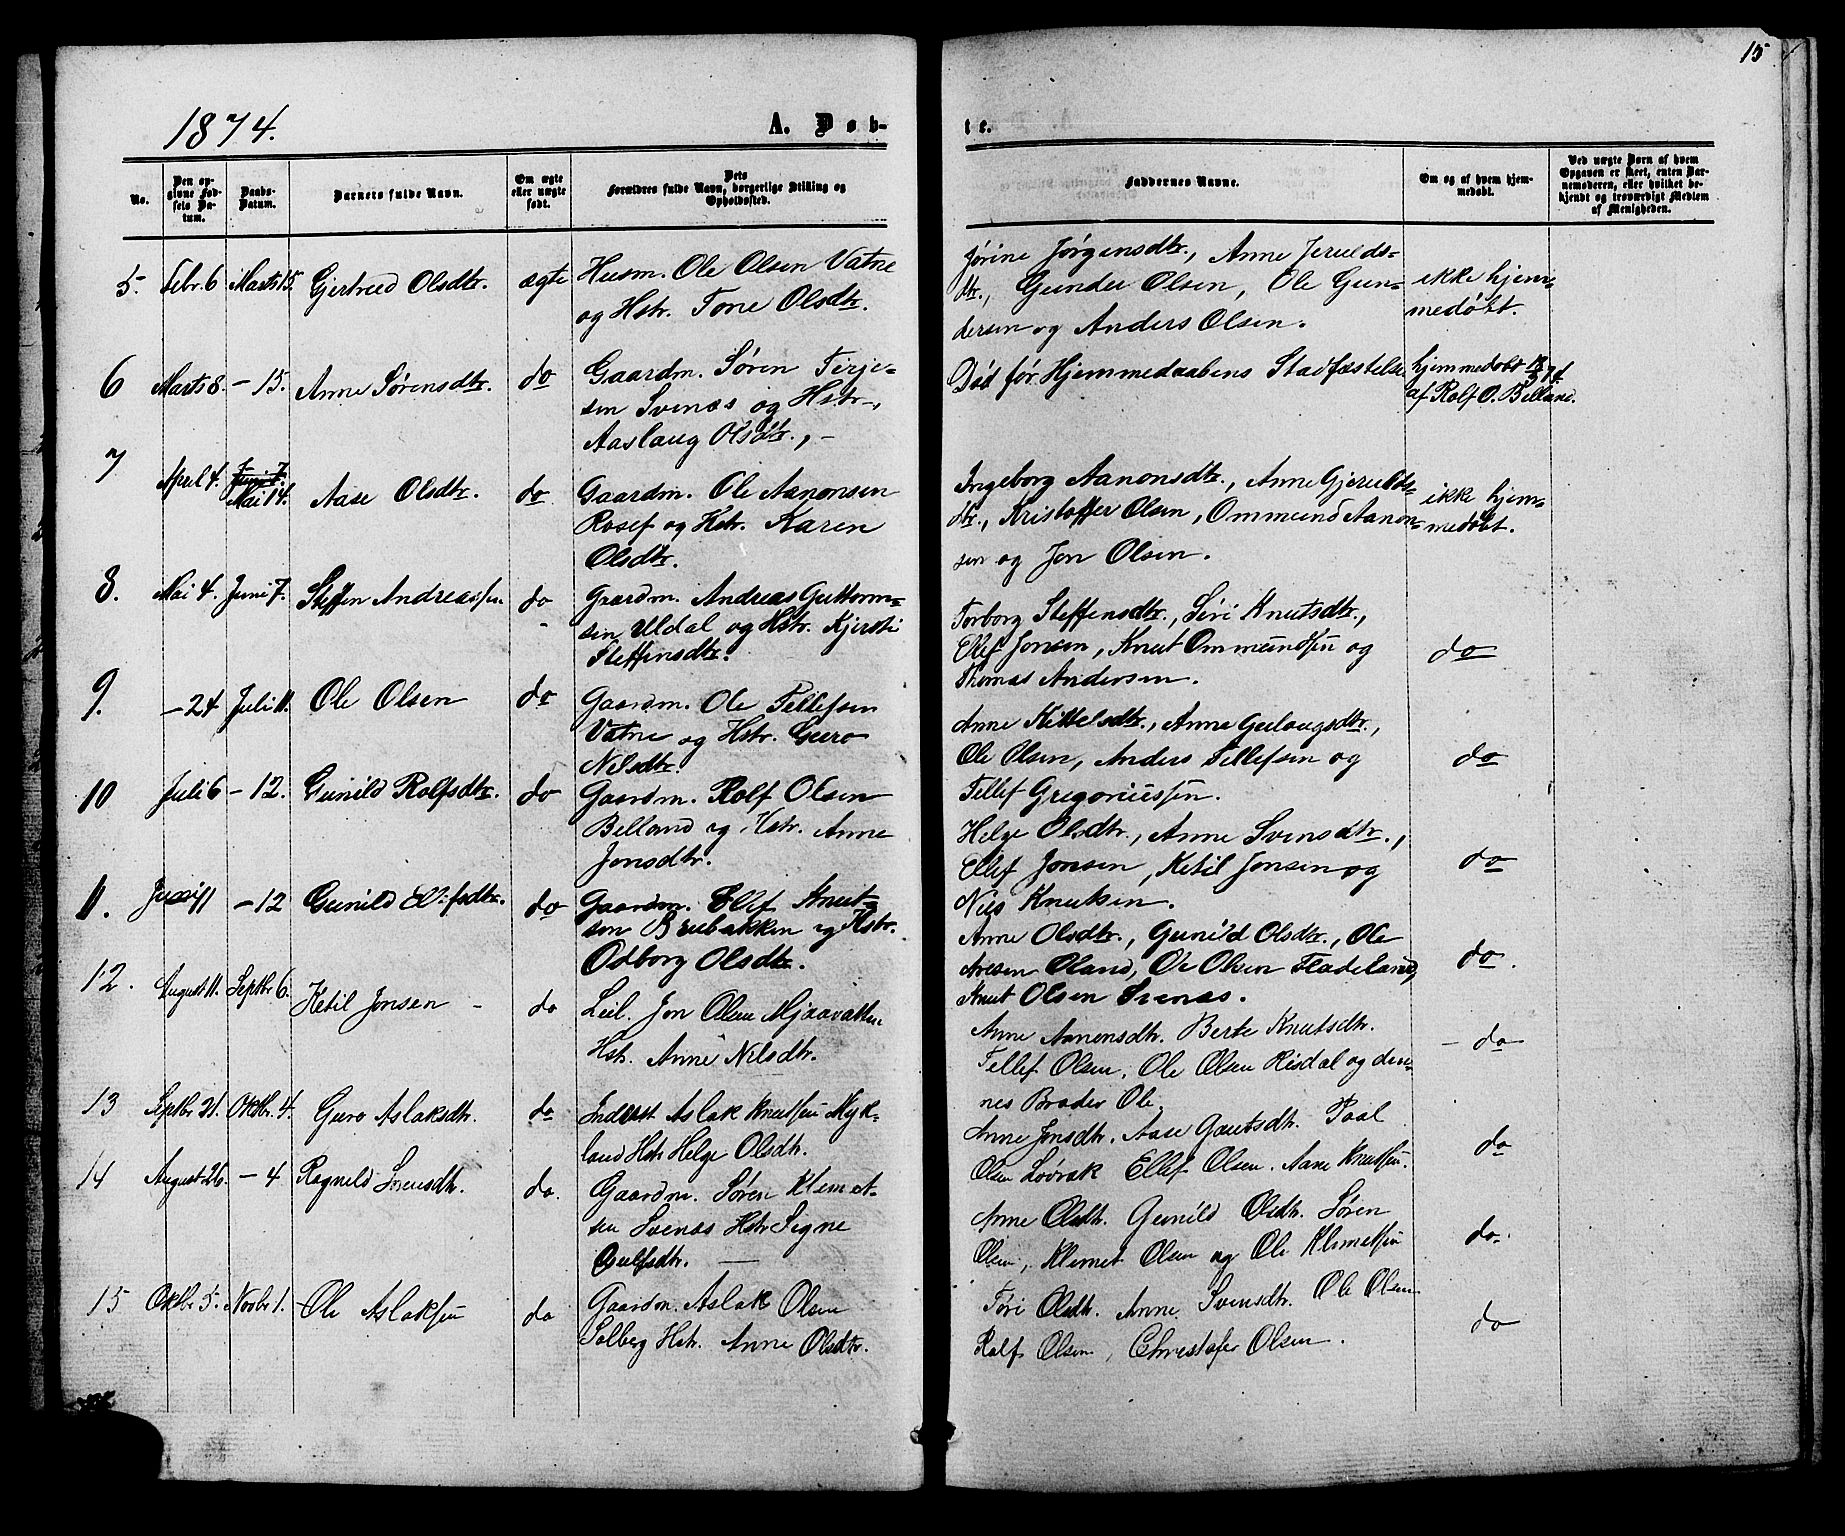 15
1874.
A. Døb-
te.
No.
Den op-
givne Fød-
sels Da-
tum.
Daabs-
Datum.
Barnets fulde Navn.
Om ægte
eller uægte
født.
Dets
Forældres fulde Navn, borgerlige Stilling og
Opholdssted.
Faddernes Navne.
Om og af hvem hjem-
medøbt.
Ved uægte Børn af hvem
Opgaven er skeet, enten Bar-
nemoderen, eller hvilket be-
kjendt og troværdigt Medlem
af Menigheden.
5. Febr. 6 Marts 15. Gjertrud Olsdtr. ægte
Husm. Ole Olsen Vatne
og Hstr. Tone Olsdtr.
Jørine Jørgensdtr., Anne Jerulds-
dtr., Gunder Olsen, Ole Gun-
dersen og Anders Olsen.
ikke hjem-
medøbt.
6 Marts 8. - 15. Anne Sørensdtr. do
Gaardm. Søren Terje-
sen Svenas og Hstr.,
Aaslaug Olsdtr., -
Død før Hjemmedaabens Stadfæstelse
hjemmedøbt
af Rolf O. Belland.
7 April 4. Juni 7.
Mai 14. Aase Olsdtr. do
Gaardm. Ole Aanonsen
Rosef og Hstr. Karen
Olsdtr.
Ingeborg Aanonsdtr., Anne Gjerulds-
dtr., Kristoffer Olsen, Ommund Aanon-
sen og Jon Olsen.
ikke hjem-
medøbt.
8. Mai 4. Juni 7. Steffen Andreassen do
Gaardm. Andreas Guttorm-
sen Uldal og Hstr. Kjersti
Steffensdtr.
Torborg Steffensdtr., Siri Knutsdtr.,
Ellef Jonsen, Knut Ommundsen og
Thomas Andersen.
do
9. - 24 Juli 11. Ole Olsen do
Gaardm. Ole Tellefsen
Vatne og Hstr. Guro
Nilsdtr.
Anne Kittelsdtr., Anne Gulaugsdtr.,
Ole Olsen, Anders Tellefsen og
Tellef Gregoriussen.
do
10 Juli 6 - 12. Gunild Rolfsdtr. do
Gaardm. Rolf Olsen
Belland og Hstr. Anne
Jonsdtr.
Helge Olsdtr., Anne Svensdtr.,
Ellef Jonsen, Ketil Jonsen og
Nils Knutsen.
do
11. 11 - 12 Gunild Ellefsdtr. do
Gaardm. Ellef Knut-
sen Brubakken og Hstr.
Odborg Olsdtr.
Anne Olsdtr., Gunild Olsdtr., Ole
Aresen Øland, Ole Olsen Fladeland,
Knut Olsen Svenas.
do.
12. August 11. Septbr 6. Ketil Jonsen - do
Leil. Jon Olsen Mjaavatten
Hstr. Anne Nilsdtr.
Anne Aanensdtr. Berte Knutsdtr.
Tellef Olsen, Ole Olsen Risdal og den-
nes Broder Ole.
- do
13 Septbr 21. Oktbr. 4. Guro Aslaksdtr. do
Inderst Aslak Knutsen Myk-
land Hstr Helge Olsdtr.
Anne Jonsdtr. Aase Gautsdtr. Paal
Olsen Løvrak Ellef Olsen. Aane Knutsen.
do
14 August 26. - 4 Ragnild Sørensdtr. do.
Gaardm. Søren Klemet-
sen Svenas Hstr Signe
Gulfsdtr. —
Anne Olsdtr. Gunild Olsdtr. Søren
Olsen, Klemet Olsen og Ole Klemetsen
do.
15 Oktbr. 5. Novbr 1. Ole Aslaksen do
Gaardm. Aslak Olsen
Solberg Hstr. Anne Olsdtr.
Tøri Olsdtr. Anne Svensdtr. Ole Olsen
Rolf Olsen, Christofer Olsen.
do